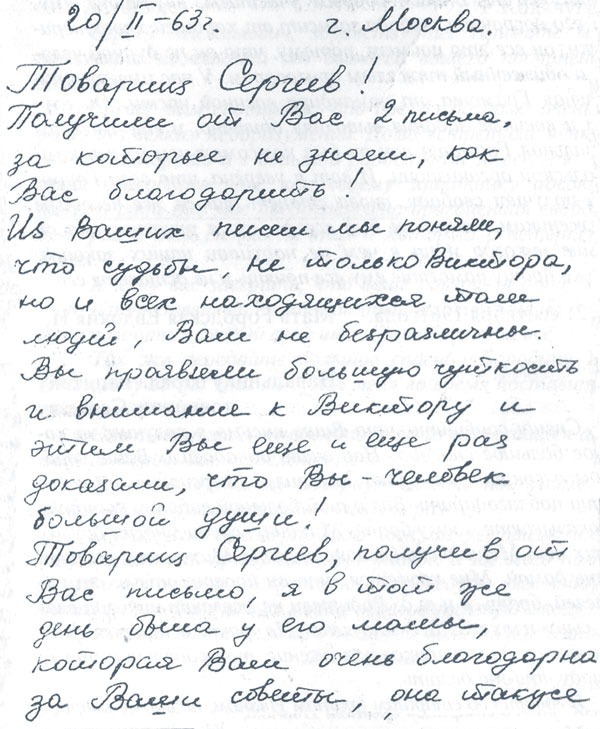 20/II-63г. г. Москва.
Товарищ Сергиев!
Получили от Вас 2 письма,
за которые не знаем, как
Вас благодарить!
Из Ваших писем мы поняли,
что судьбы, не только Виктора,
но и всех находящихся там
людей, Вам не безразличны.
Вы проявили большую чуткость
и внимание к Виктору и
этим Вы еще и еще раз
доказали, что Вы человек
большой души!
Товарищ Сергиев, получив от
Вас письмо, я в тот же
день была у его мамы,
которая Вам очень благодарна
за Ваши советы, она также